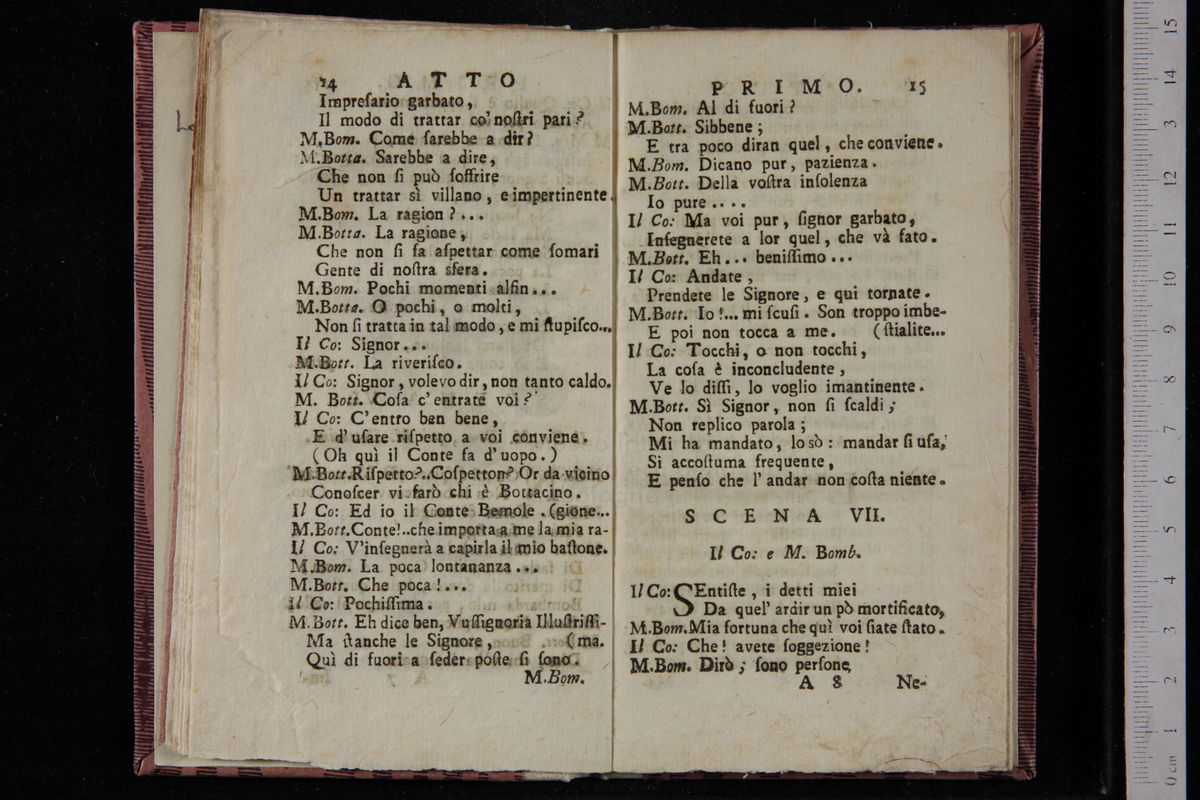 14 ATTO
Impreſario garbato,
Il modo di trattar co' noſtri pari?
M.Bom. Come ſarebbe a dir?
M.Botta. Sarebbe a dire,
Che non ſi può ſoffrire
Un trattar sì villano, e impertinente.
M.Bom. La ragion?...
M.Botta. La ragione,
Che non ſi fa aſpettar come ſomari
Gente di noſtra sfera.
M.Bom. Pochi momenti alfin...
M.Botta. O pochi, o molti,
Non ſi tratta in tal modo, e mi ſtupiſco...
Il Co: Signor...
M.Bott. La riveriſco.
Il Co: Signor, volevo dir, non tanto caldo.
M. Bott. Coſa c' entrate voi?
Il Co: C' entro ben bene,
E d' uſare riſpetto a voi conviene.
(Oh quì il Conte fa d' uopo.)
M.Bott. Riſpetto?..Coſpetton? Or da vicino
Conoſcer vi farò chi è Bottacino.
Il Co: Ed io il Conte Bemole. (gione...
M.Bott. Conte!..che importa a me la mia ra-
Il Co: V'inſegnerà a capirla il mio baſtone.
M.Bom. La poca lontananza...
M.Bott. Che poca!...
Il Co: Pochiſſima.
M.Bott. Eh dice ben, Vuſſignoria Illuſtriſſi-
Ma ſtanche le Signore, (ma.
Quì di fuori a ſeder poſte ſi ſono.
M.Bom.
PRIMO. 15
M.Bom. Al di fuori?
M.Bott. Sibbene;
E tra poco diran quel, che conviene.
M.Bom. Dicano pur, pazienza.
M.Bott. Della voſtra inſolenza
Io pure....
Il Co: Ma voi pur, ſignor garbato,
Inſegnerete a lor quel, che và fato.
M.Bott. Eh... beniſſimo...
Il Co: Andate,
Prendete le Signore, e qui tornate.
M.Bott. Io!... mi ſcuſi. Son troppo imbe-
E poi non tocca a me. (ſtialite...
Il Co: Tocchi, o non tocchi,
La coſa è inconcludente,
Ve lo diſſi, lo voglio imantinente.
M.Bott. Sì Signor, non ſi ſcaldi;
Non replico parola;
Mi ha mandato, lo sò: mandar ſi uſa,
Si accoſtuma frequente,
E penſo che l' andar non coſta niente.
SCENA VII.
Il Co: e M. Bomb.
Il Co: SEntiſte, i detti miei
Da quel' ardir un pò mortificato,
M.Bom. Mia fortuna che quì voi ſiate ſtato.
Il Co: Che! avete ſoggezione!
M.Bom. Dirò; ſono perſone,
A 8 Ne-